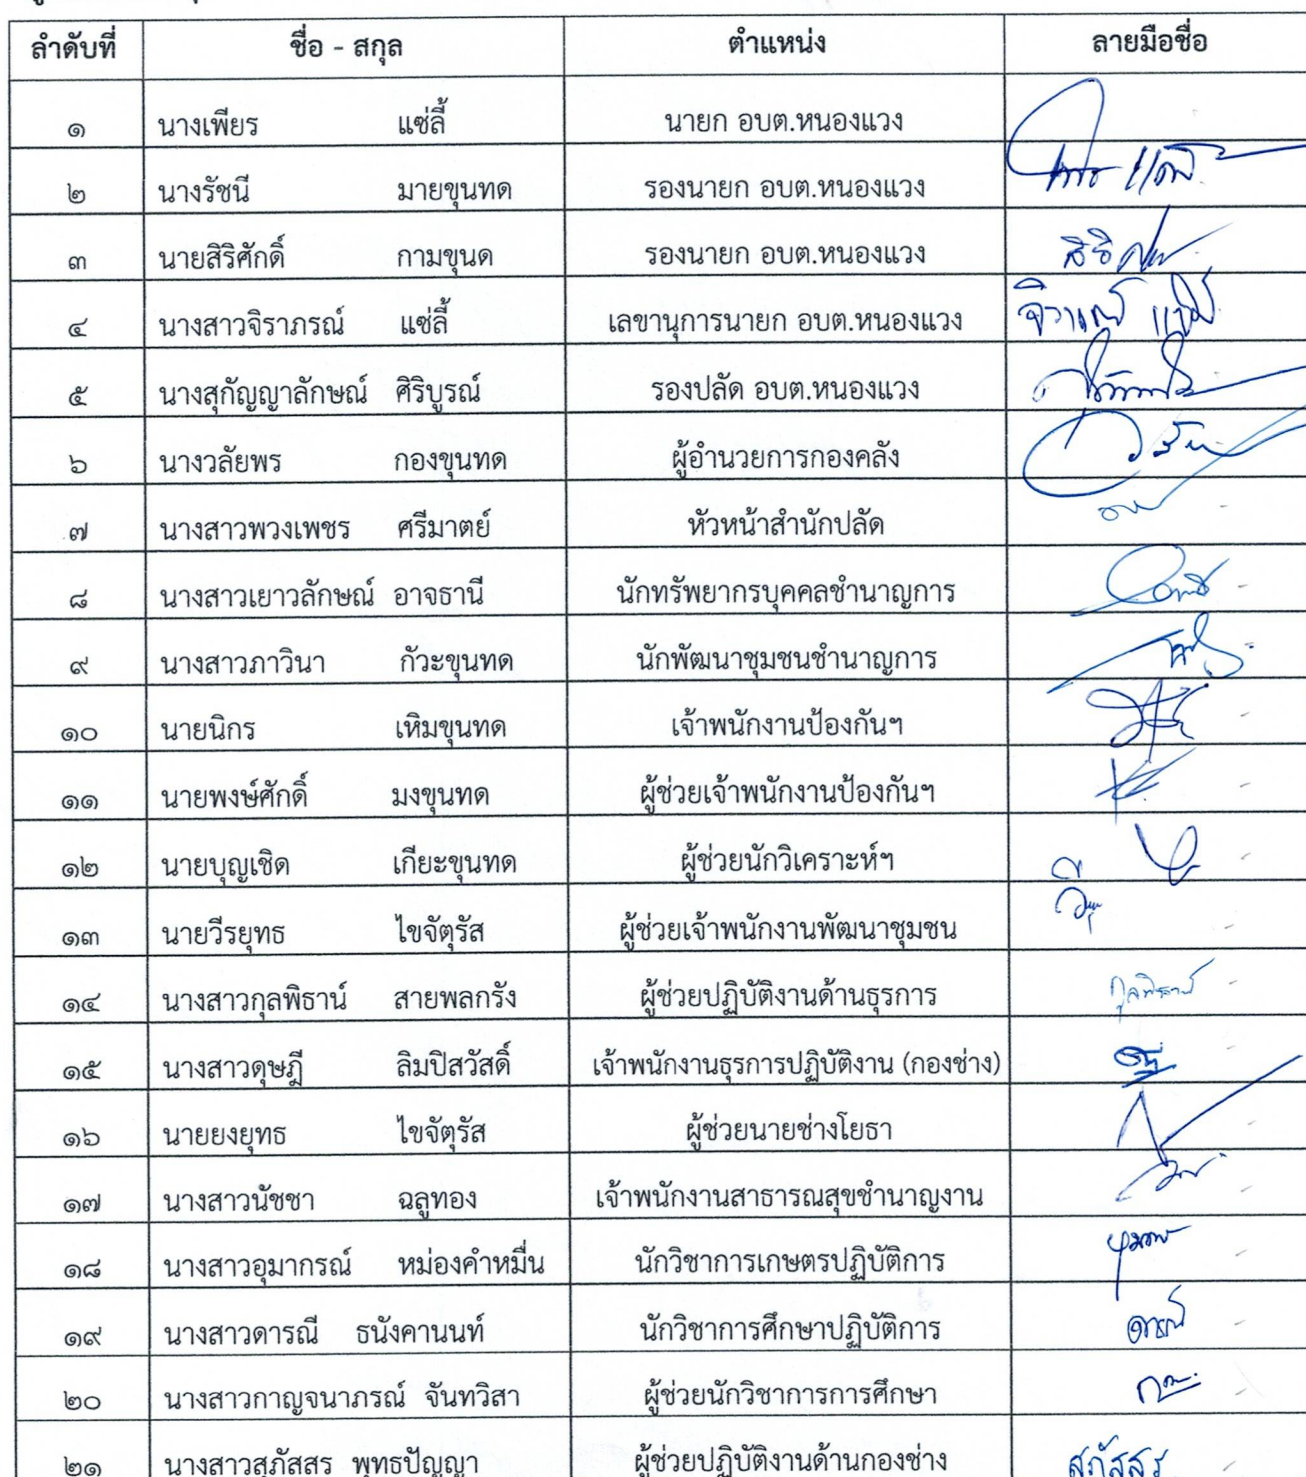 ลำดับที่ ชื่อ - สกุล ตำแหน่ง ลายมือชื่อ
๑ นางเพียร แซ่ลี้ นายก อบต.หนองแวง
๒ นางรัชนี มายขุนทด รองนายก อบต.หนองแวง
๓ นายสิริศักดิ์ กามขุนด รองนายก อบต.หนองแวง
๔ นางสาวจิราภรณ์ แซ่ลี้ เลขานุการนายก อบต.หนองแวง
๕ นางสุกัญญาลักษณ์ ศิริบูรณ์ รองปลัด อบต.หนองแวง
๖ นางวลัยพร กองขุนทด ผู้อำนวยการกองคลัง
๗ นางสาวพวงเพชร ศรีมาตย์ หัวหน้าสำนักปลัด
๘ นางสาวเยาวลักษณ์ อาจธานี นักทรัพยากรบุคคลชำนาญการ
๙ นางสาวภาวินา กัวะขุนทด นักพัฒนาชุมชนชำนาญการ
๑๐ นายนิกร เหิมขุนทด เจ้าพนักงานป้องกันฯ
๑๑ นายพงษ์ศักดิ์ มงขุนทด ผู้ช่วยเจ้าพนักงานป้องกันฯ
๑๒ นายบุญเชิด เกียะขุนทด ผู้ช่วยนักวิเคราะห์ฯ
๑๓ นายวีรยุทธ ไขจัตุรัส ผู้ช่วยเจ้าพนักงานพัฒนาชุมชน
๑๔ นางสาวกุลพิธาน์ สายพลกรัง ผู้ช่วยปฏิบัติงานด้านธุรการ กุลพิธาน์
๑๕ นางสาวดุษฎี ลิมปิสวัสดิ์ เจ้าพนักงานธุรการปฏิบัติงาน (กองช่าง)
๑๖ นายยงยุทธ ไขจัตุรัส ผู้ช่วยนายช่างโยธา
๑๗ นางสาวนัชชา ฉลูทอง เจ้าพนักงานสาธารณสุขชำนาญงาน
๑๘ นางสาวอุมากรณ์ หม่องคำหมื่น นักวิชาการเกษตรปฏิบัติการ
๑๙ นางสาวดารณี ธนังคานนท์ นักวิชาการศึกษาปฏิบัติการ
๒๐ นางสาวกาญจนาภรณ์ จันทวิสา ผู้ช่วยนักวิชาการการศึกษา
๒๑ นางสาวสุภัสสร พุทธปัญญา ผู้ช่วยปฏิบัติงานด้านกองช่าง สุภัสสร